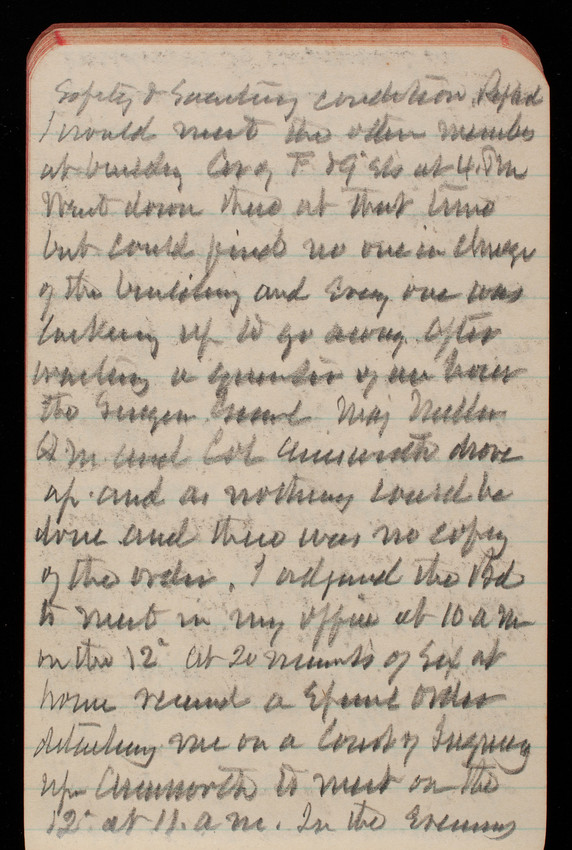 Safety & Sanitary condition. Replied
I would meet the other members
at building Cor of F & 9" Sts at 4. P M
Went down there at that time
but could find no one in charge
of the building and every one was
locking up to go away. After
waiting a quarter of an hour
the Surgeon General Maj
Q M and Col Ainsworth drove
up and as nothing could be
done and there was no copy
of the order, I adjournd the Bd
to meet in my office at 10 a m
on the 12" At 20 minuts of six at
home received a Special order
detailing me on a Court of Inquiry
up Ainsworth to meet on the
12" at 11. a m. In the Evening